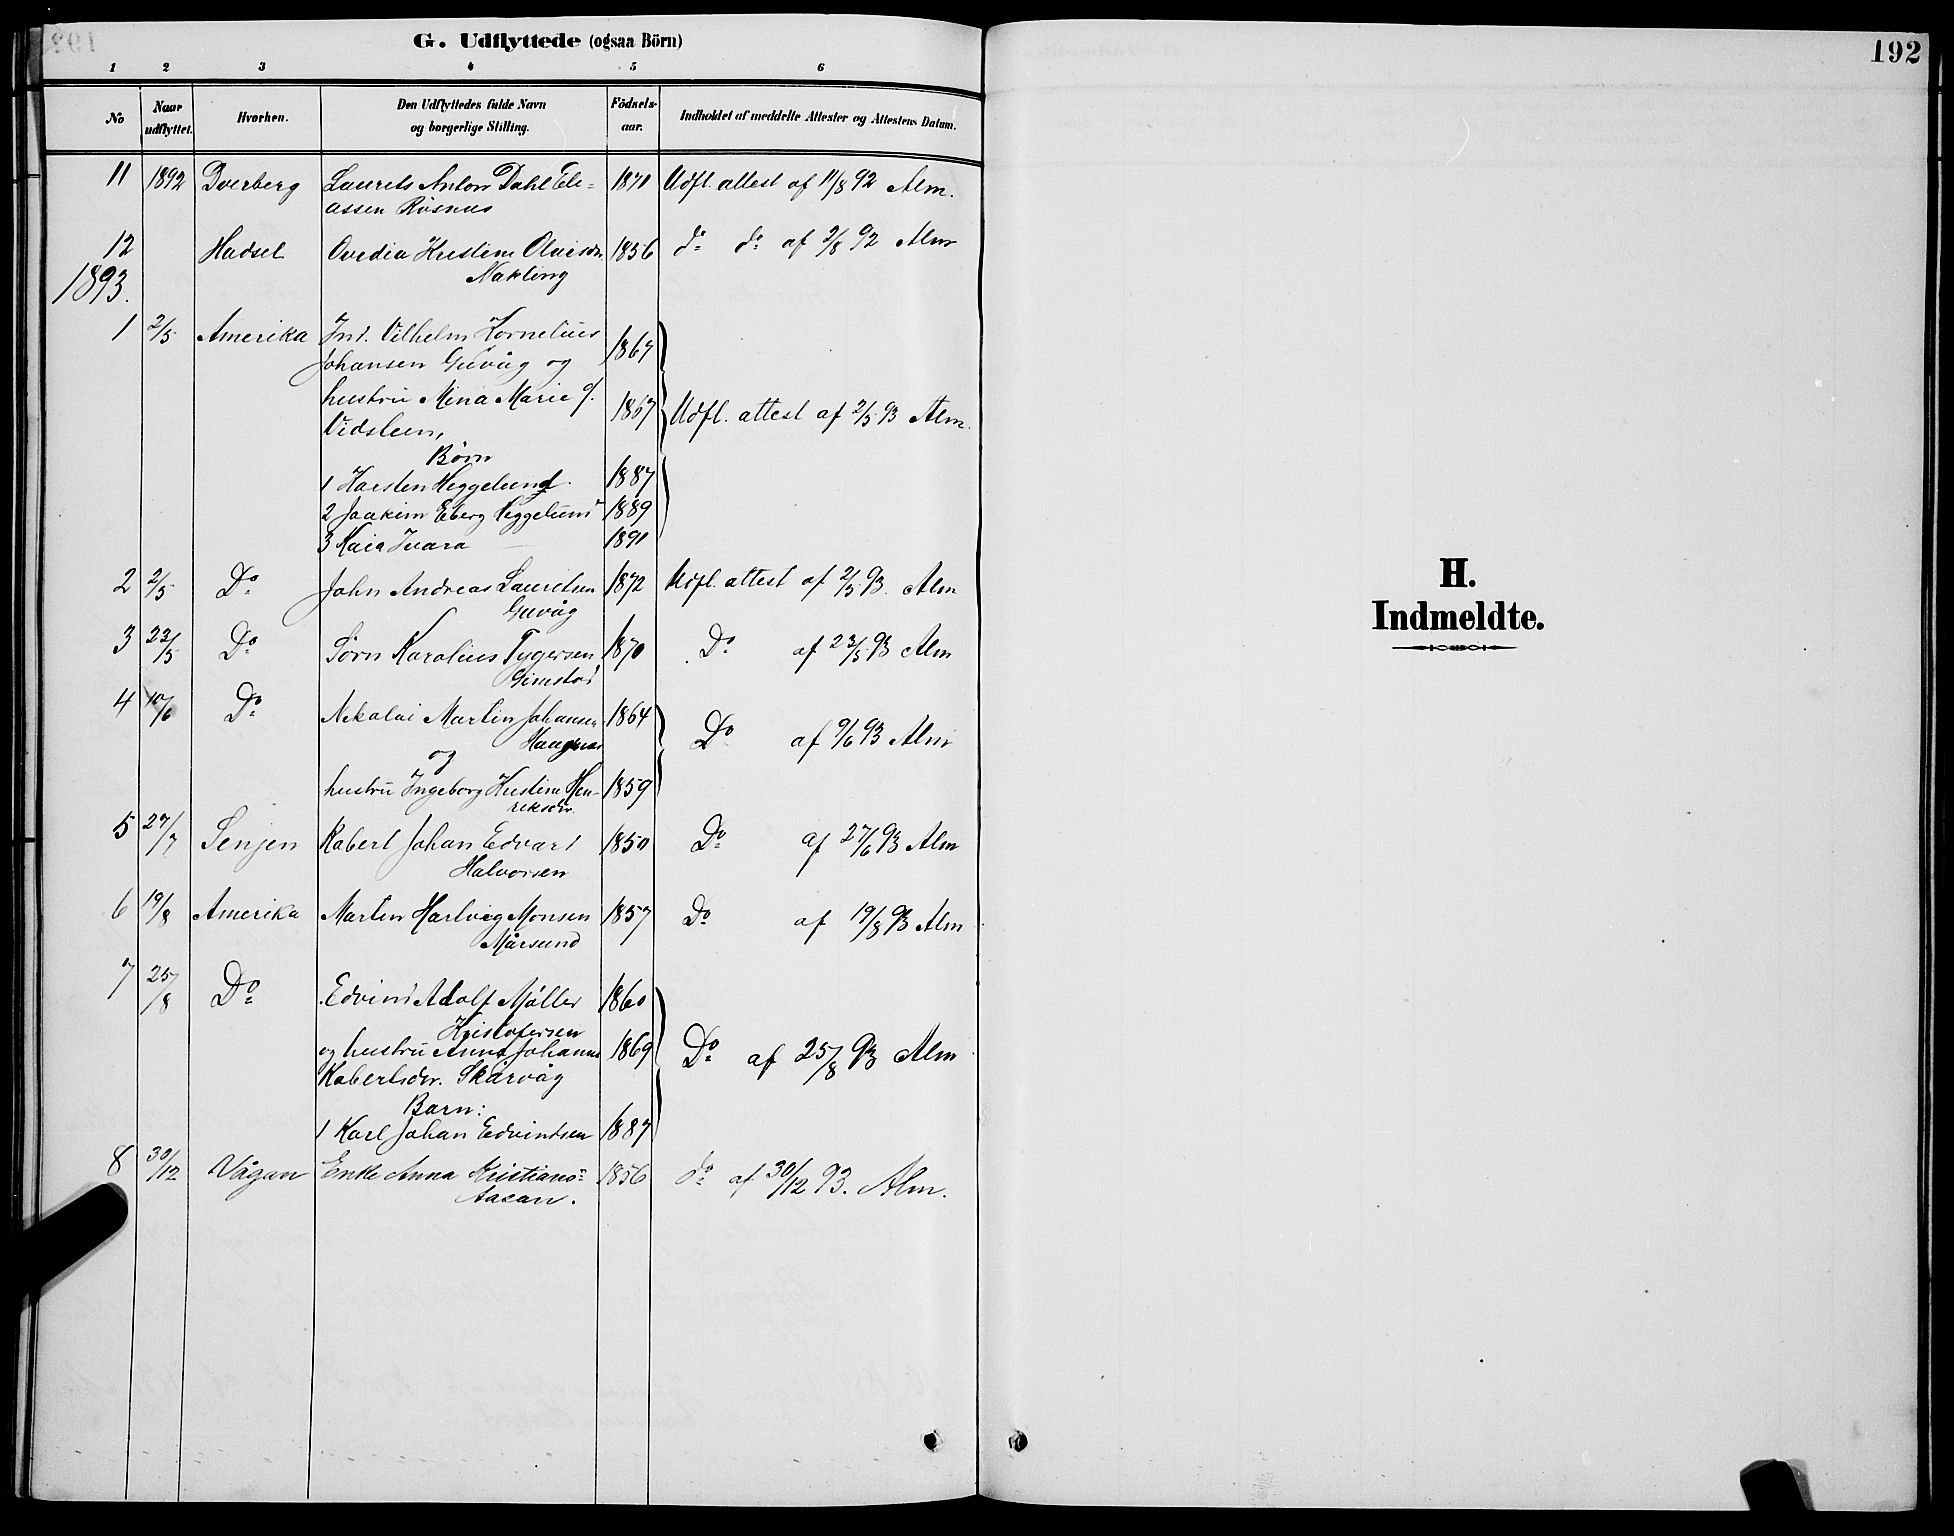 G. Udflyttede (ogsaa Börn)
1 2 3 4 5 6
No Naar udflyttet. Hvorhen. Den Udflyttedes fulde Navn og borgerlige Stilling. Födsels-aar. Indholdet af meddelte Attester og Attestens Datum.
11 1892 Dverberg Laurits Anton Dahl Eli- 1871 Udfl. attest af 11/8 92 Alm.
assen Røsnes
12 Hadsel Ovedia Kristine Olaisdr. 1856 do do af 2/8 92 Alm
Nakling
1893.
1 2/5 Amerika Ind. Vilhelm Kornelius
Johansen Guvåg og 1867
hustru Mina Marie f. 1867 Udfl. attest af 2/5 93 Alm.
Vidsteen,
Børn
1 Karsten Heggelund 1887
2 Joakim Eberg Heggelund 1889
3 Kaia Ivara — 1891
2 2/5 Do John Andreas Lauritsen 1872 Udfl. attest af 2/5 93. Alm
Guvåg
3 23/5 Do Sørn Karolius Tygersen 1870 Do af 23/5 93 Alm
Gimstad
4 10/6 Do Nikolai Martin Johansen 1864
Haugnes Do af 9/6 93 Alm
og
hustru Ingeborg Kristine Hen- 1859
riksdr.
5 27/7 Senjen Robert Johan Edvard 1850 Do af 27/6 93 Alm
Halvorsen
6 19/8 Amerika Martin Hartvig Monsen 1857 Do af 19/8 93 Alm
Mårsund
7 25/8 Do Edvind Adolf Møller 1860
Kristofersen
og hustru Anna Johanna 1869 Do af 25/8 93 Alm
Robertsdr. Skårvåg
Barn:
1 Karl Johan Edvindsen 1887
8 30/12 Vågan Enke Anna Kristians- 1856 do af 30/12 93. Alm.
Aasan.
192
H.
Indmeldte.